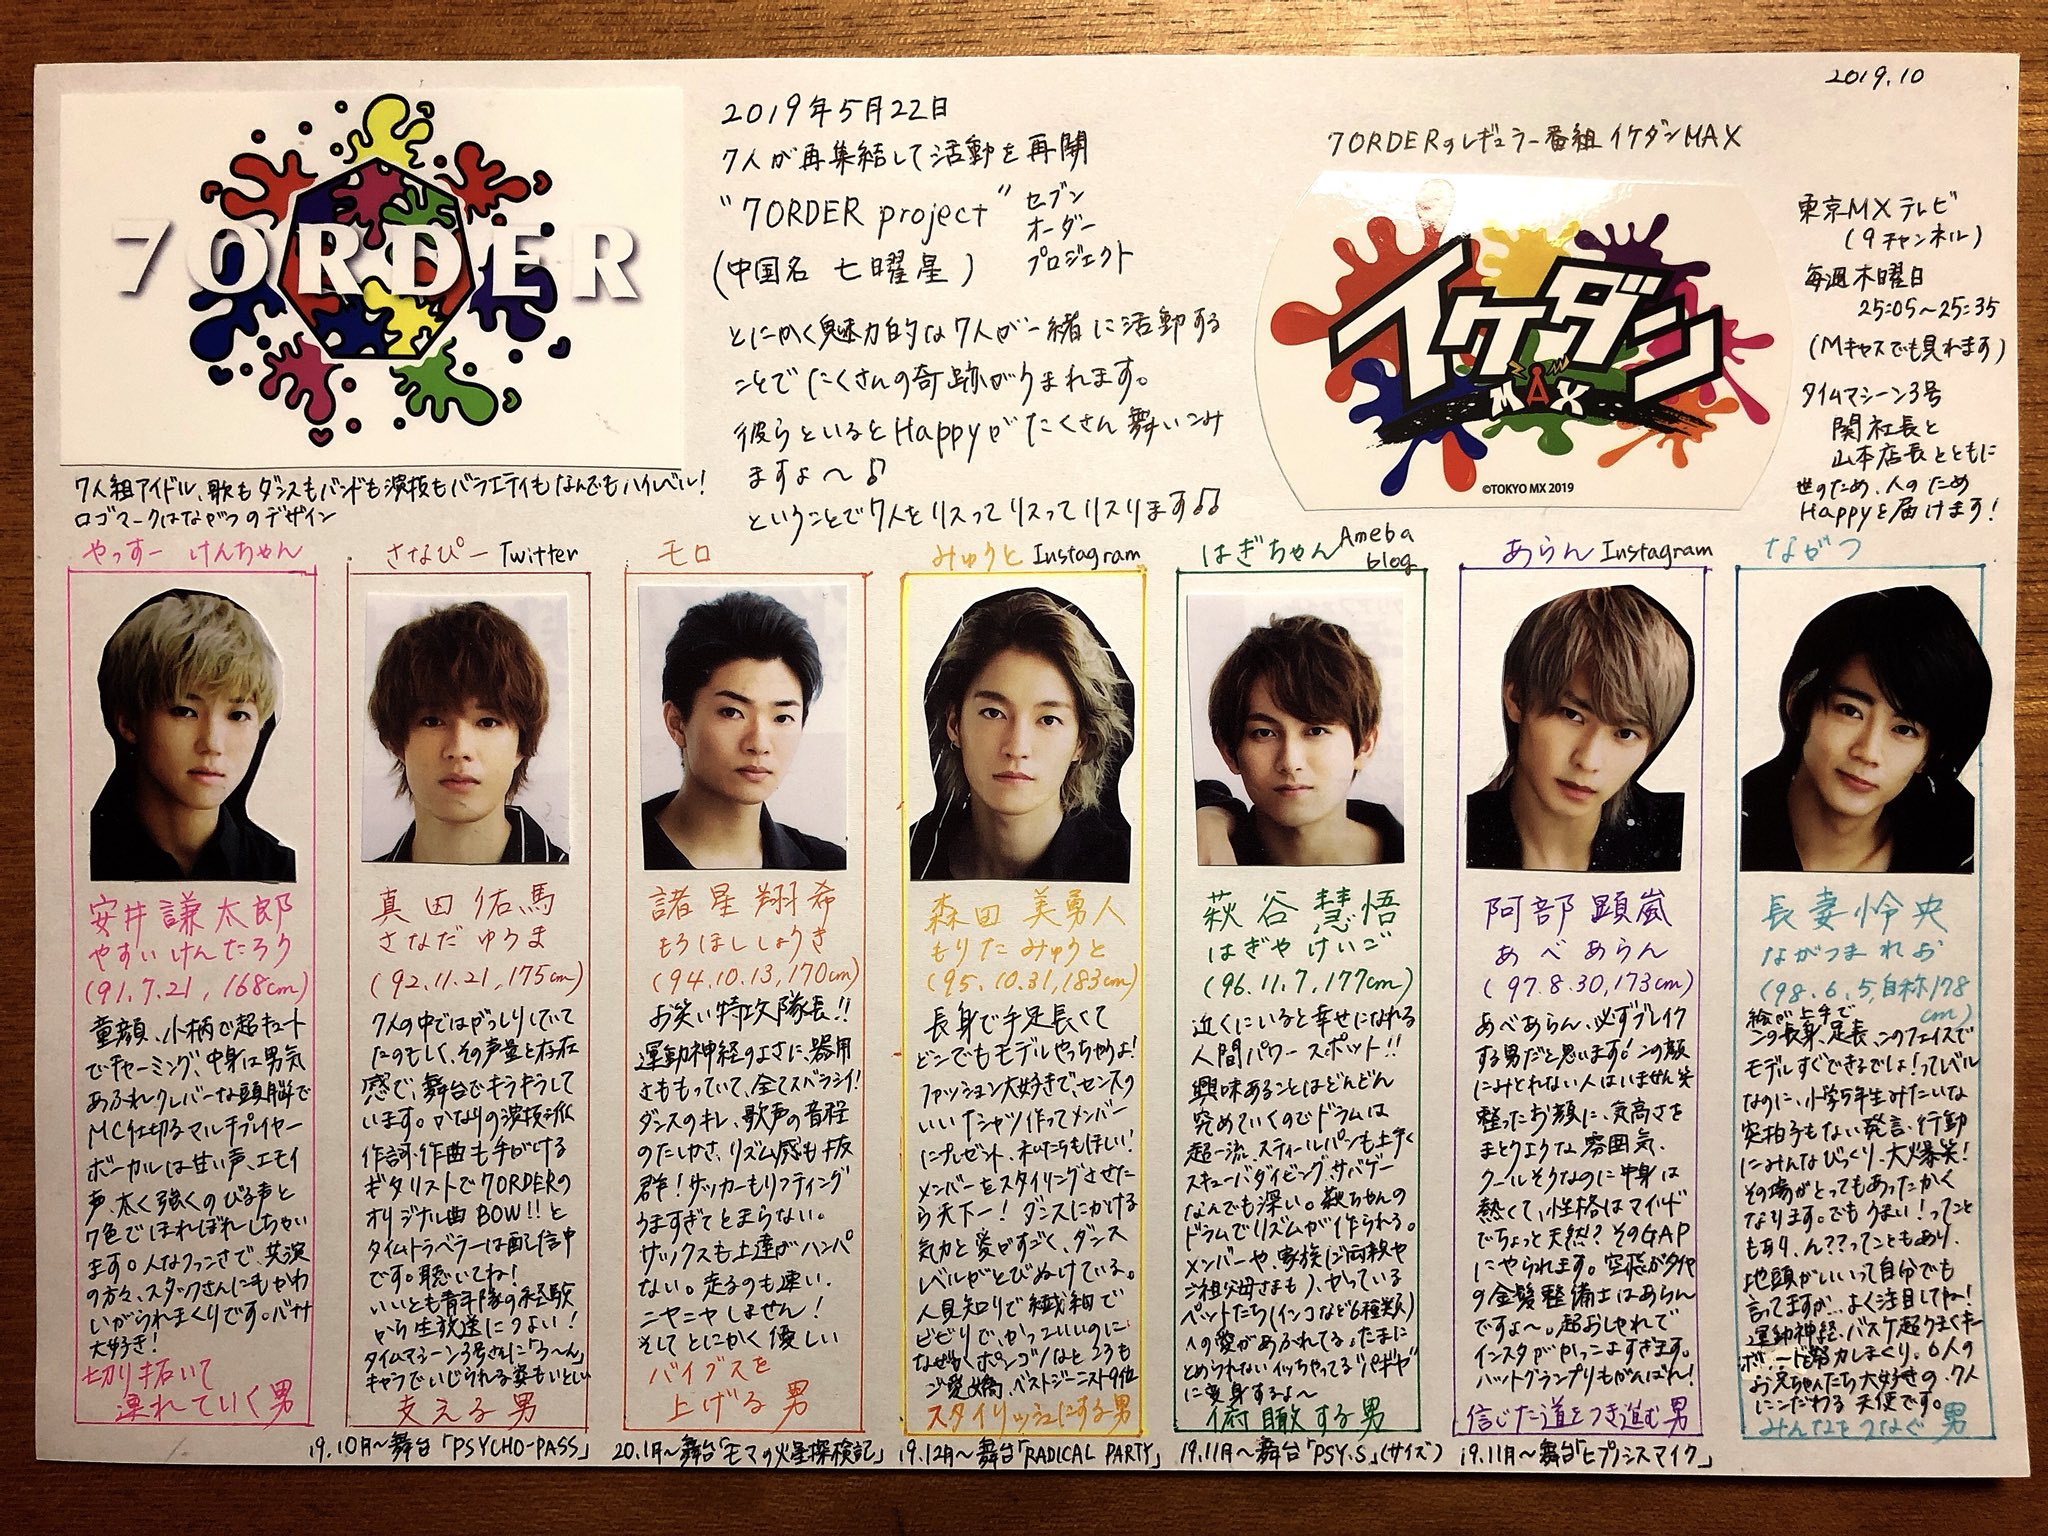 2019.10
7ORDER
7人組アイドル、歌もダンスもバンドも演技もバラエティもなんでもハイレベル!
ロゴマークはながつのデザイン
2019年5月22日
7人が再集結して活動を再開
"7ORDER project"
セブン
オーダー
プロジェクト
(中国名 七曜星)
とにかく魅力的な7人が一緒に活動する
ことでたくさんの奇跡がうまれます。
彼らといるとHappyがたくさん舞いこみ
ますよ〜♪
ということで7人をリスってリスってリスります♫
7ORDERのレギュラー番組 イケダンMAX
イケダン
MAX
©TOKYO MX 2019
東京MXテレビ
(9チャンネル)
毎週木曜日
25:05〜25:35
(Mキャスでも見れます)
タイムマシーン3号
関社長と
山本店長とともに
世のため、人のため
Happyを届けます!
やっすー けんちゃん
安井謙太郎
やすい けんたろう
(91.7.21, 168cm)
童顔、小柄で超キュート
でチャーミング、中身は男気
あふれクレバーな頭脳で
MC仕切るマルチプレイヤー
ボーカルは甘い声、エモイ
声、太く強くのびる声と
7色でほれぼれしちゃい
ます。人なつっこさで、共演
の方々、スタッフさんにもかわ
いがられまくりです。バナナ
大好き!
切り拓いて
連れていく男
さなぴー Twitter
真田佑馬
さなだ ゆうま
(92.11.21, 175cm)
7人の中ではがっしりしていて
たのもしく、その声量と存在
感で、舞台でキラキラして
います。かなりの演技派
作詞・作曲も手がける
ギタリストで7ORDERの
オリジナル曲BOW!!と
タイムトラベラーは配信中
です。聴いてね!
いいとも青年隊の経験
から生放送につよい!
タイムマシーン3号さんに「う〜ん」
キャラでいじられる姿もいとしい
支える男
19.10月〜舞台「PSYCHO-PASS」
モロ
諸星翔希
もろほし しょうき
(94.10.13, 170cm)
お笑い特攻隊長!!
運動神経のよさに、器用
さももっていて、全てスバラシイ!
ダンスのキレ、歌声の音程
のたしかさ、リズム感も抜
群!サッカーもリフティング
うますぎてとまらない。
サックスも上達がハンパ
ない。走るのも速い.
ニヤニヤしません!
そしてとにかく優しい
バイブスを
上げる男
20.1月〜舞台「モマの火星探検記」
みゅうと Instagram
森田美勇人
もりた みゅうと
(95.10.31, 183cm)
長身で手足長くて
どこでもモデルやっちゃうよ!
ファッション大好きで、センスの
いいTシャツ作ってメンバー
にプレゼント、私たちもほしい!
メンバーをスタイリングさせた
ら天下一!ダンスにかける
気力と愛がすごく、ダンス
レベルがとびぬけている。
人見知りで繊細で
ビビリで、かっこいいのに
なぜかポンコツなところも
ご愛嬌、ベストジーニスト9位
スタイリッシュにする男
19.12月〜舞台「RADICAL PARTY」
はぎちゃん Ameba
blog
萩谷慧悟
はぎや けいご
(96.11.7, 177cm)
近くにいると幸せになれる
人間パワースポット!!
興味あることはどんどん
究めていくのでドラムは
超一流、スティールパンも上手く
スキューバダイビング、サバゲー
なんでも深い。萩ちゃんの
ドラムでリズムが作られる。
メンバーや、家族(ご両親や
ご祖父母さまも)、かっている
ペットたち(インコなど6種類)
への愛があふれてる。たまに
とめられないイッちゃってる"パギヤ"
に変身するよ〜
俯瞰する男
19.11月〜舞台「PSY・S」(サイズ)
あらん Instagram
阿部顕嵐
あべ あらん
(97.8.30, 173cm)
あべあらん、必ずブレイク
する男だと思います!この顔
にみとれない人はいません笑
整ったお顔に、気高さを
まとうクリアな雰囲気、
クールそうなのに中身は
熱くて、性格はマイルド
でちょっと天然?そのGAP
にやられます。空飛ぶタイヤ
の金髪整備士はあらん
ですよ〜。超おしゃれで
インスタがかっこよすぎます。
ハットグランプリもがんばれ!
信じた道をつき進む男
19.11月〜舞台「ヒプノシスマイク」
ながつ
長妻怜央
ながつま れお
(98.6.5, 自称178
cm)
絵が上手で
この長身、足長、このフェイスで
モデルすぐできるでしょ!ってレベル
なのに、小学5年生みたいな
突拍子もない発言、行動
にみんなびっくり、大爆笑!
その場がとってもあったかく
なります。でもうまい!ってこと
もあり、ん??ってこともあり、
地頭がいいって自分でも
言ってますが…よく注目してね!
運動神経、バスケ超うまくキー
ボードも努力しまくり。6人の
お兄ちゃんたち大好きの、7人
にこだわる天使です。
みんなをつなぐ男